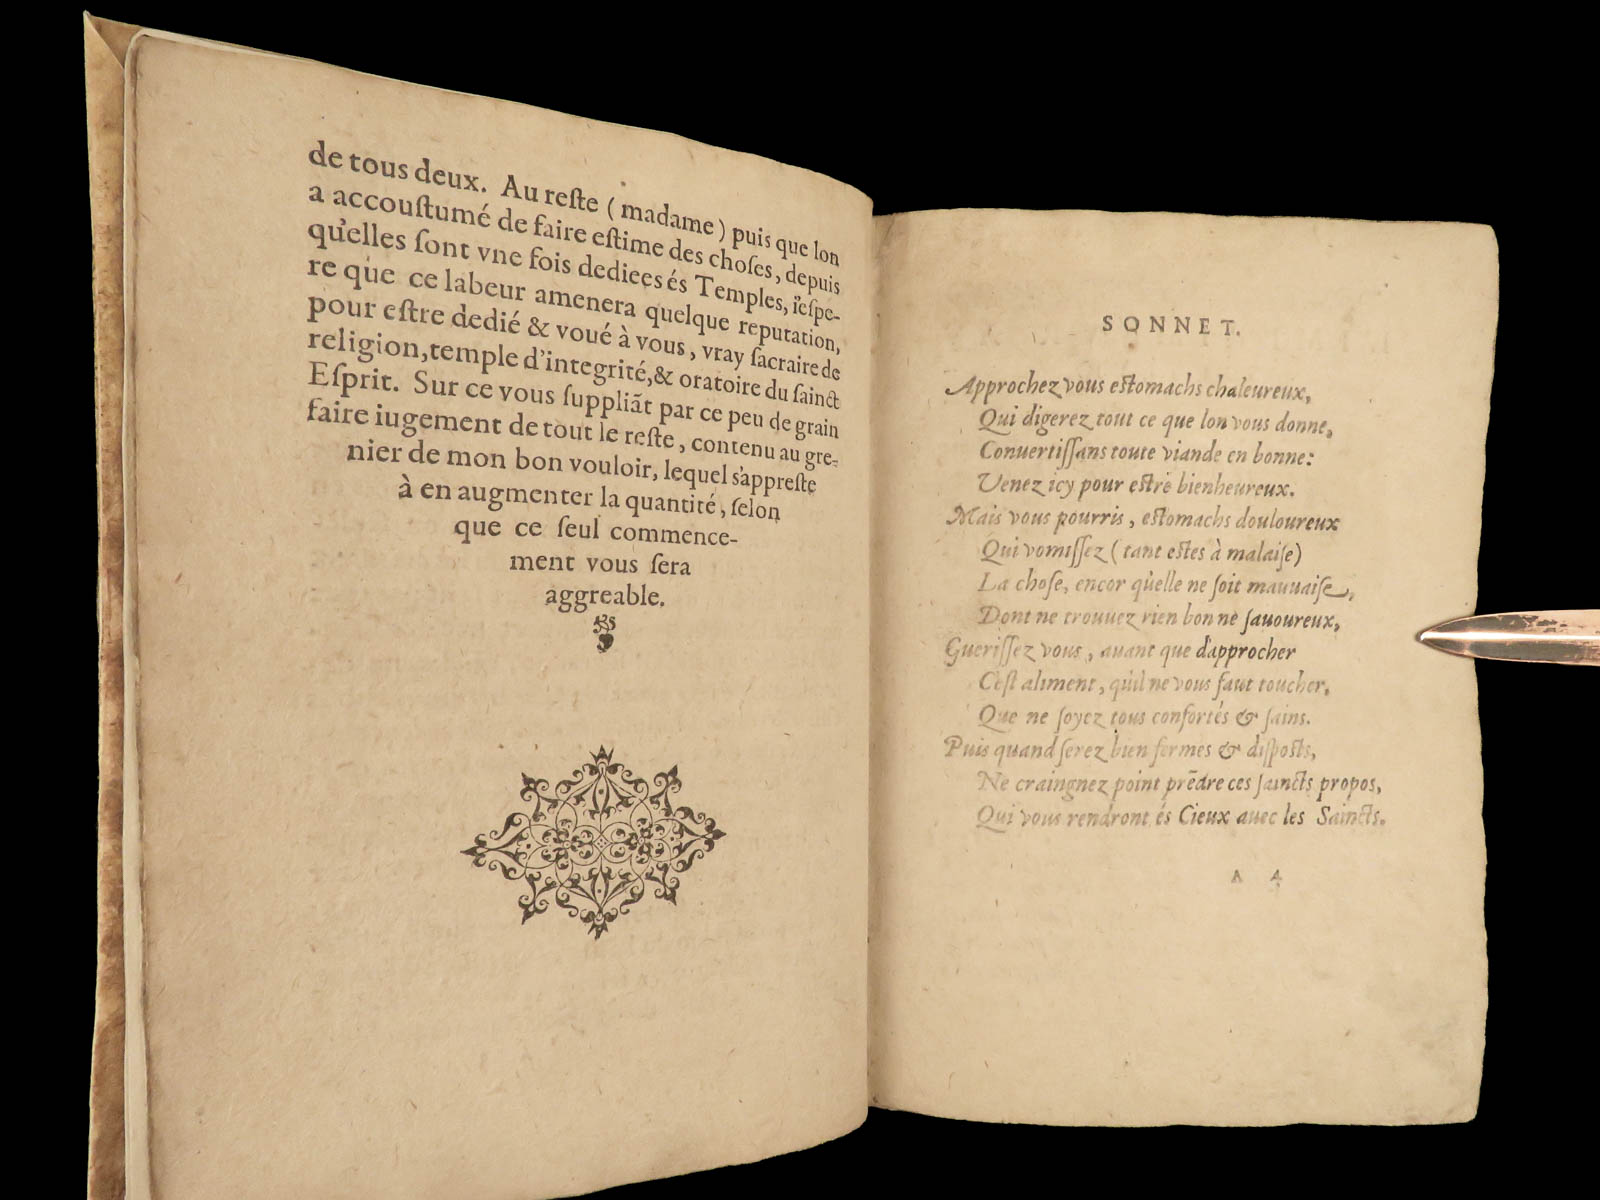 de tous deux. Au reſte (madame) puis que lon
a accouſtumé de faire eſtime des choſes, depuis
qu'elles ſont vne fois dediees és Temples, i'eſpe-
re que ce labeur amenera quelque reputation,
pour eſtre dedié & voué à vous, vray ſacraire de
religion, temple d'integrité, & oratoire du ſainct
Eſprit. Sur ce vous ſuppliãt par ce peu de grain
faire iugement de tout le reſte, contenu au gre-
nier de mon bon vouloir, lequel s'appreſte
à en augmenter la quantité, ſelon
que ce ſeul commence-
ment vous ſera
aggreable.
SONNET.
Approchez vous eſtomachs chaleureux,
Qui digerez tout ce que lon vous donne,
Conuertiſſans toute viande en bonne:
Venez icy pour eſtre bienheureux.
Mais vous pourris, eſtomachs douloureux
Qui vomiſſez (tant eſtes à malaiſe)
La choſe, encor qu'elle ne ſoit mauuaiſe,
Dont ne trouuez rien bon ne ſauoureux,
Gueriſſez vous, auant que d'approcher
C'eſt aliment, qu'il ne vous faut toucher,
Que ne ſoyez tous confortés & ſains.
Puis quand ſerez bien fermes & diſpoſts,
Ne craingnez point prẽdre ces ſaincts propos,
Qui vous rendront és Cieux auec les Saincts.
A 4